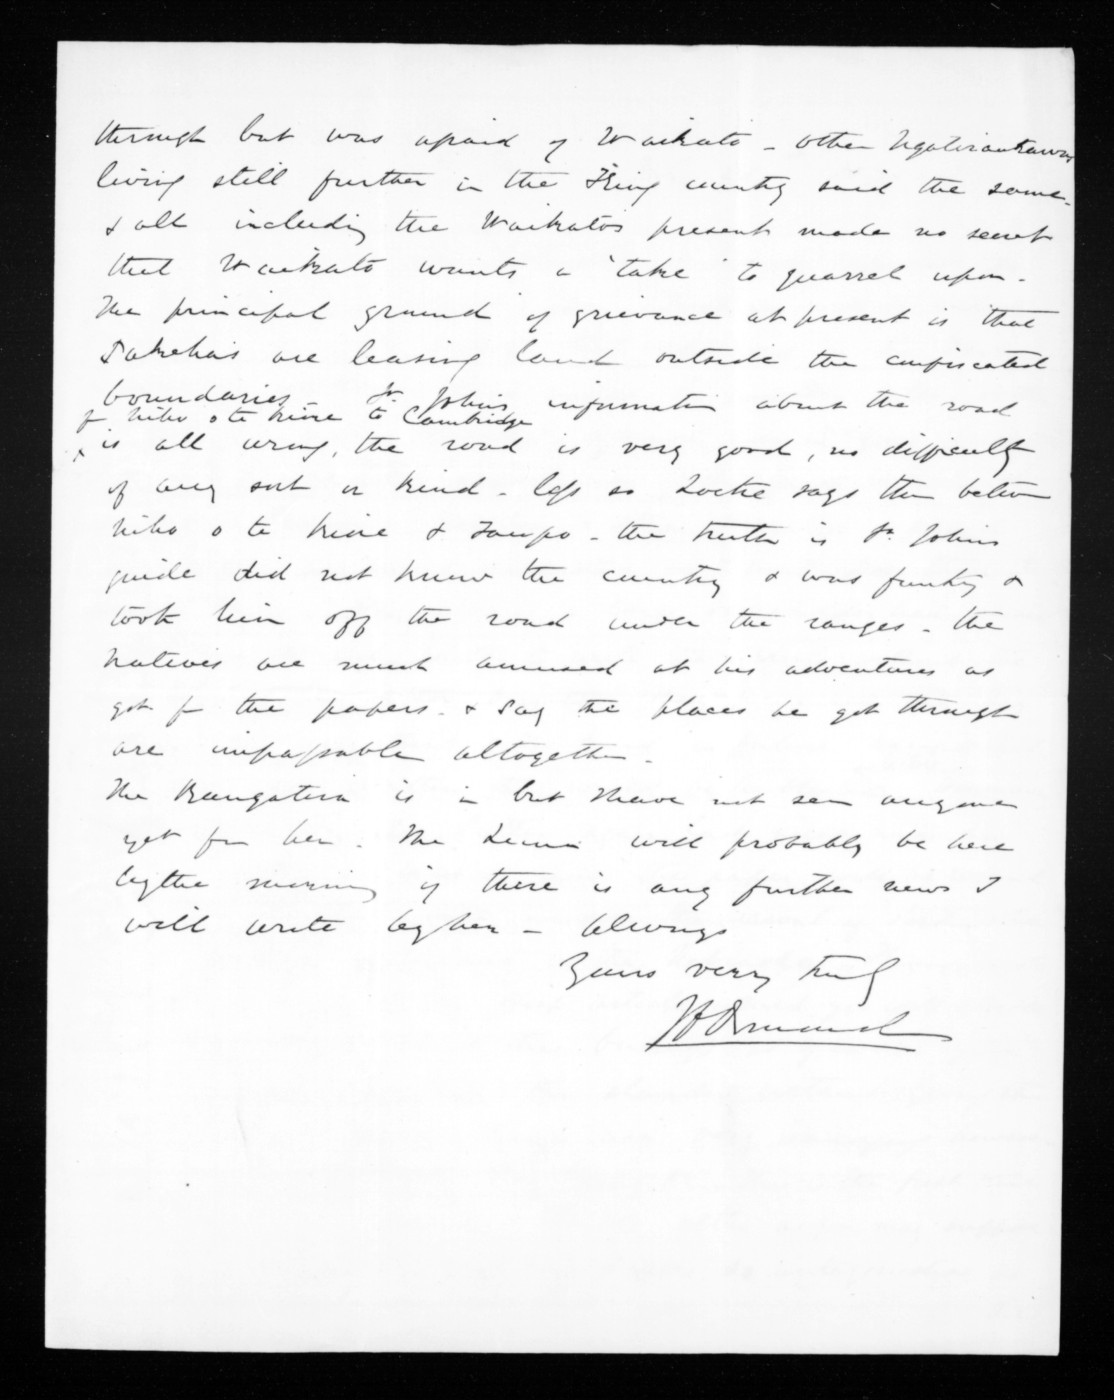 through but was afraid of Waikato - other Ngatiraukawas
living still further in the King country said the same -
& all including the Waikatos present made no secret
that Waikato wants a "take" to quarrel upon -
The principal ground of grievance at present is that
Pakehas are leasing land outside the confiscated
boundaries - St. Johns information about the road
fr Niho o te kiore to Cambridge
x is all wrong, the road is very good, no difficulty
of any sort or kind - less so Locke says than between
Niho o te kiore & Taupo - the truth is St. Johns
guide did not know the country & was funky &
took him off the road under the ranges - the
Natives are much amused at his adventures as
got fr the papers - & say the places he got through
are impassable altogether -
The Rangatira is in but I have not seen anyone
yet fm her. The Luna will probably be here
by the morning if there is any further news I
will write by her - always
Yours very truly
JDOrmond